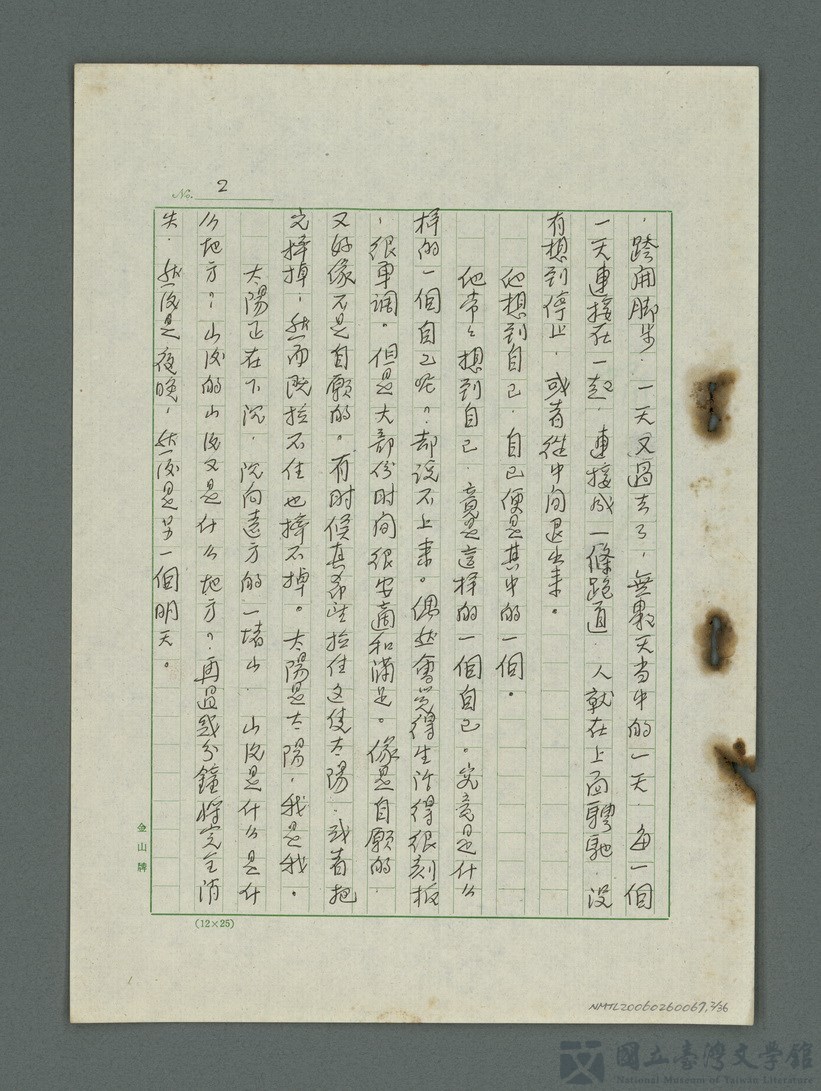 No. 2
，跨開脚步，一天又過去了，無數天当中的一天，每一個
一天連接在一起，連接成一條跑道，人就在上面聘馳，没
有想到停止，或者從中间退出来。
他想到自己，自己便是其中的一個。
他常々想到自己，竟是這样的一個自己。究竟是什么
样的一個自己呢？却说不上来。偶然會觉得生活得很刻板
，很单调。但是大部份时间很安適和满足。像是自願的，
又好像不是自願的。有时候真希望拉住这侊太陽，或者把
它摔掉，然而既拉不住也摔不掉。太陽是太陽，我是我。
太陽正在下沉，沉向遠方的一堵山，山後是什么是什
么地方？山後的山後又是什么地方？再過幾分鐘将完全消
失，然後是夜晚，然後是另一個明天。
金山牌
(12×25)
NMTL20060260067,2/36
國立臺灣文學館
National Museum of Taiwan Literature